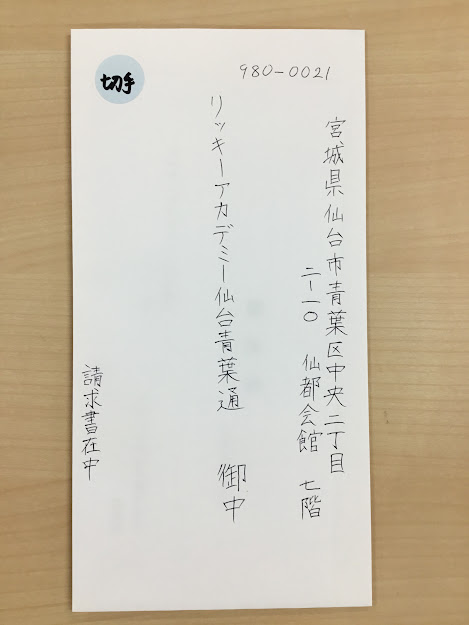 切手
980-0021
宮城県仙台市青葉区中央二丁目
二ー一〇 仙都会館 七階
リッキーアカデミー仙台青葉通 御中
請求書在中